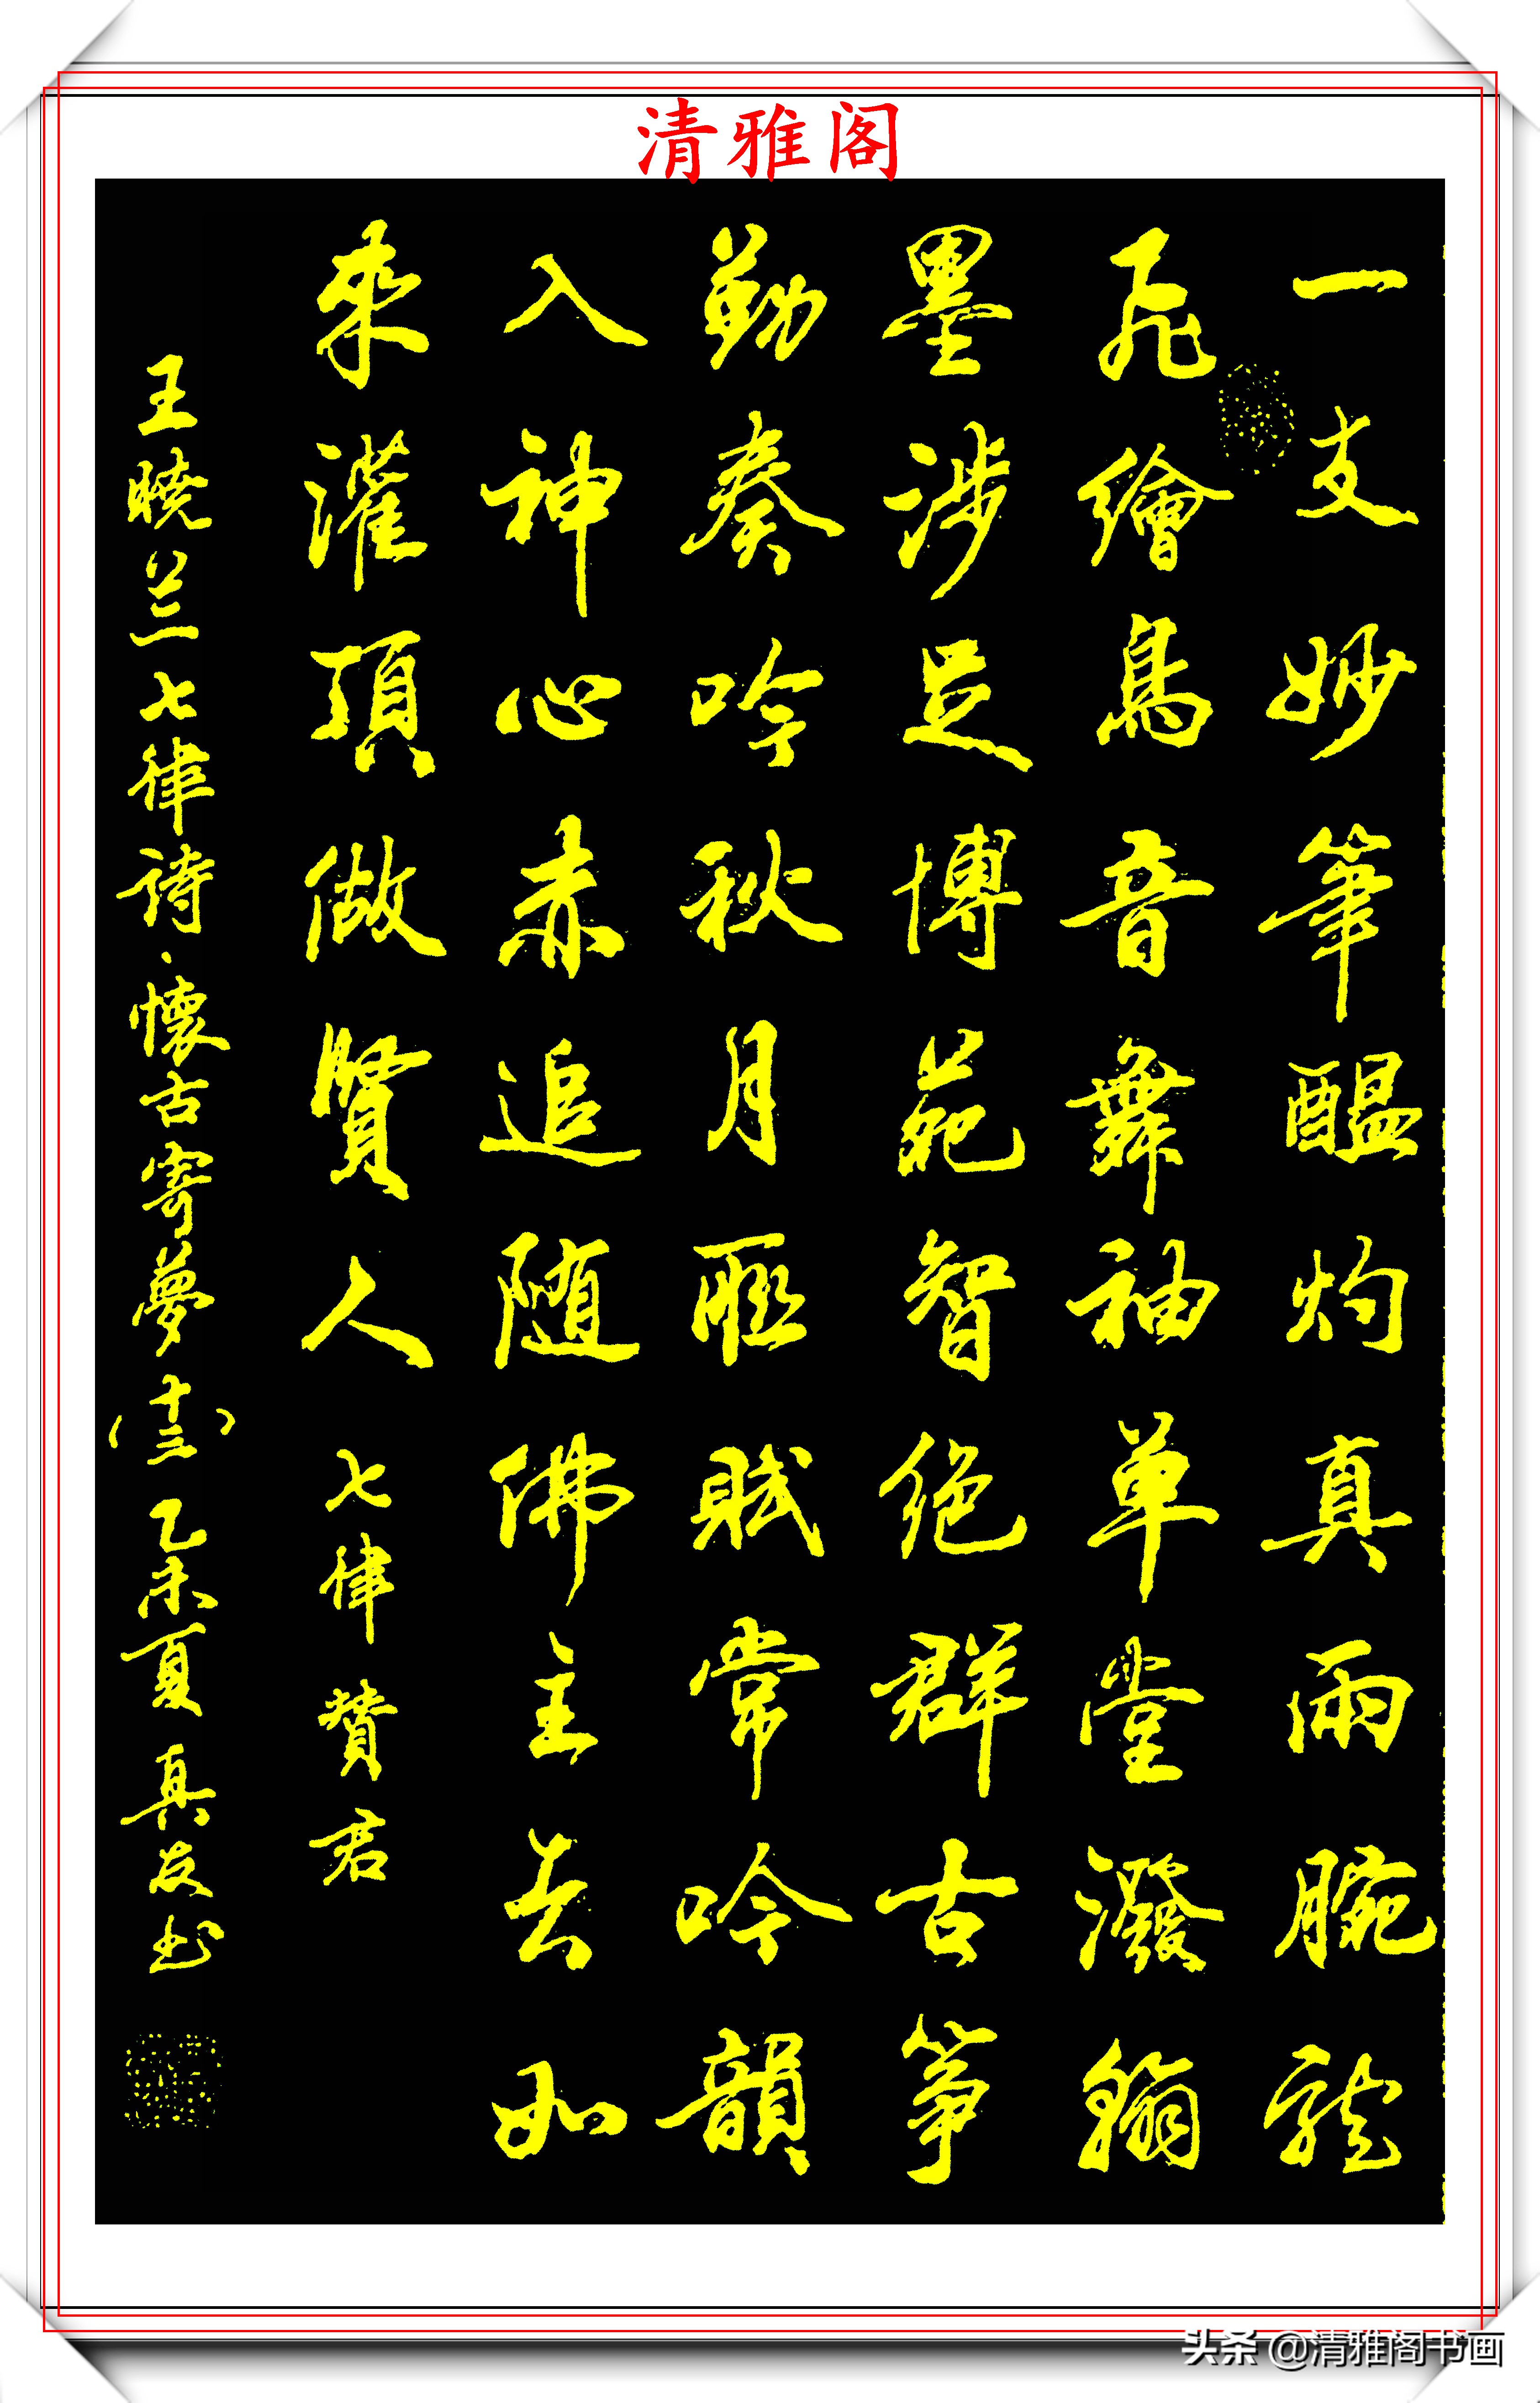 清雅阁
一支妙筆醖灼真雨腕龍
飛繪鳥音舞袖单堂潑翰
墨涉足博苑智絶群古筝
勤奏吟秋月聴賦常吟韻
入神心赤追随佛主去如
來灌頂做賢人 七律 贊君
王曉兰七律詩·懷古寄夢（十三）乙未夏 真友书
头条 @清雅阁书画